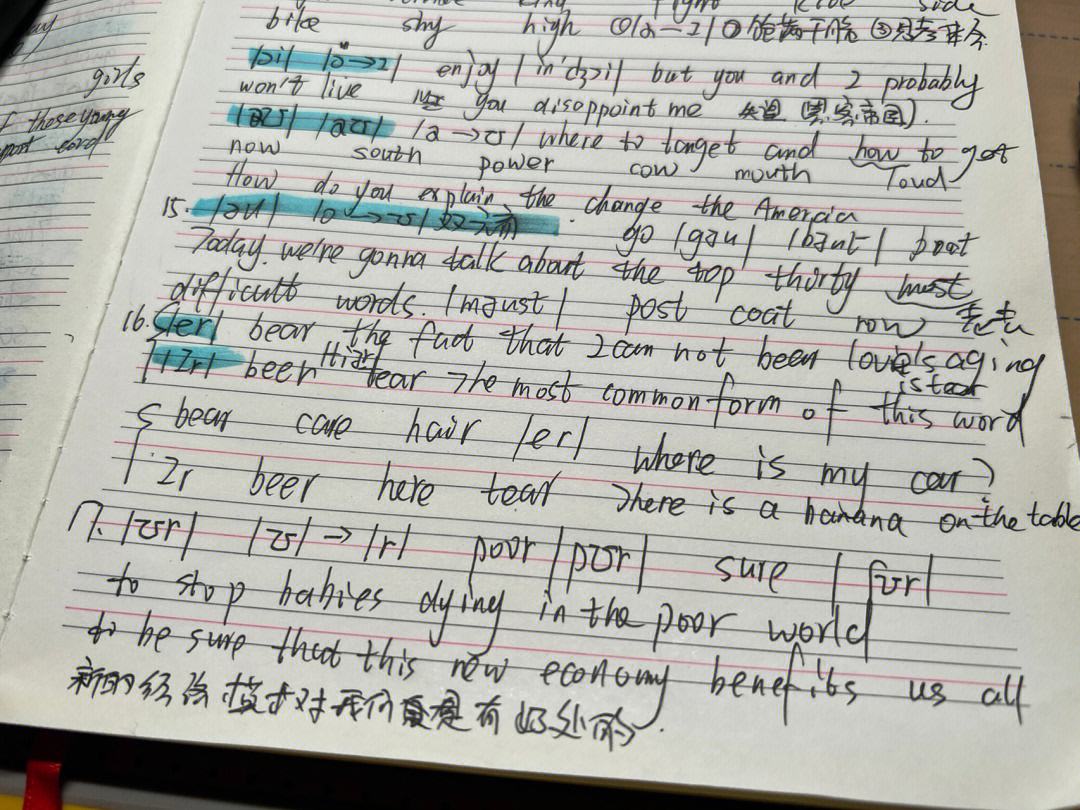 side
bike shy high
girls
/ɔi/ /ɔ→ɪ/ enjoy /in'dʒɔi/ but you and I probably
won't live you disoppoint me 失望
f those young
/aʊ/ /aʊ/ /a→ʊ/ where to tanget and how to get
now south power cow mouth loud
How do you explain the change the Amercia
15. /əu/ /o→ʊ/ 双元音 go /gəu/ /bəut/ boat
Today. we're gonna talk about the top thirty most
difficult words. /məust/ post coat row
16. /er/ bear the fact that I can not been
/ɪr/ beer tear The most common form of this word
bear care hair /er/ where is my car?
ɪr beer here tear There is a banana on the table
17. /ʊr/ /ʊ/→/r/ poor /pʊr/ sure /ʃʊr/
to stop babies dying in the poor world
to be sure that this new economy benefits us all
新的经济 对我们 是有好处的.